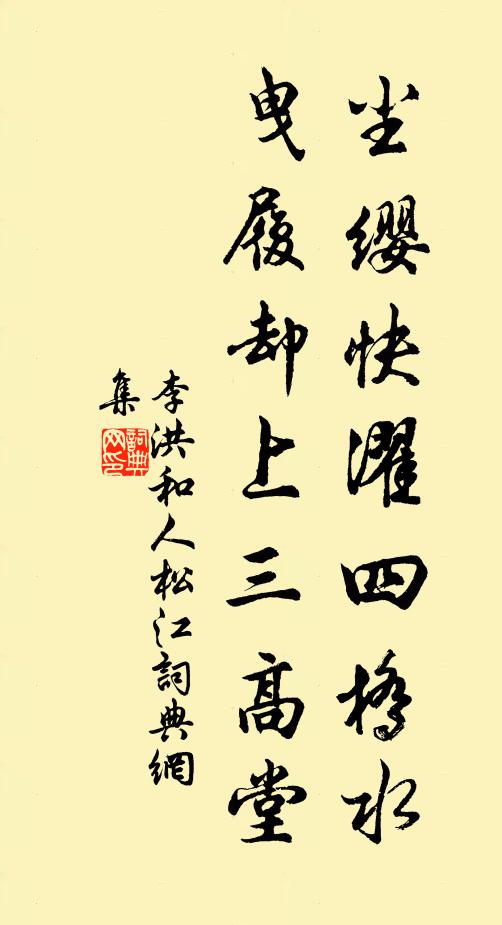 尘缨快濯四桥水
曳履却上三高堂
李洪和人松江詞典網
集
詞典
网印